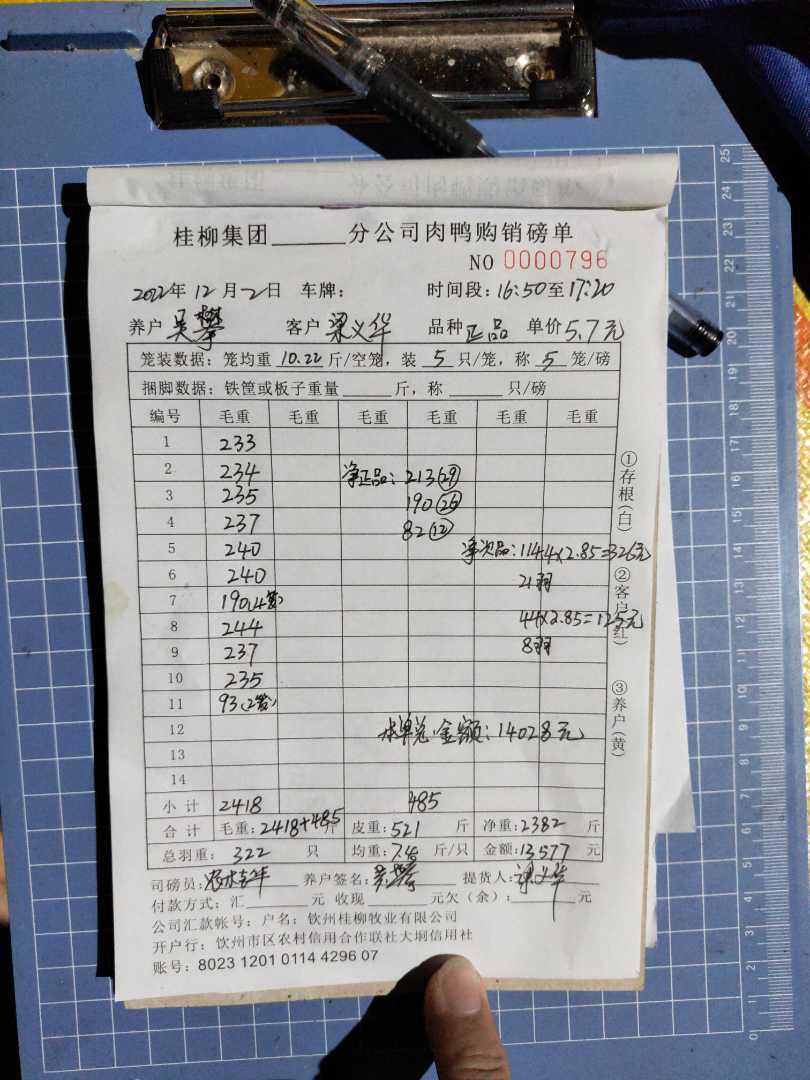 桂柳集团______分公司肉鸭购销磅单
NO 0000796
2022年12月2日 车牌: 时间段:16:50至17:20
养户 吴攀 客户 梁义华 品种 正品 单价 5.7元
笼装数据: 笼均重 10.22 斤/空笼, 装 5 只/笼, 称 5 笼/磅
捆脚数据: 铁筐或板子重量______斤, 称______只/磅
编号 毛重 毛重 毛重 毛重 毛重
1 233
2 234 净正品: 213(29)
3 235 190(26)
4 237 82(12)
5 240 净次品: 114.4x2.85=326元
6 240 21羽
7 190(4笼) 44x2.85=125元
8 244 8羽
9 237
10 235
11 93(2笼)
12 本单总金额: 14028元
13
14
小计 2418 485
合计 毛重: 2418+485斤 皮重: 521 斤 净重: 2382 斤
总羽重: 322 只 均重: 7.4 斤/只 金额: 13577 元
司磅员: 养户签名: 吴攀 提货人: 梁义华
付款方式: 汇______元 收现______元欠(余):______元
公司汇款帐号: 户名: 钦州桂柳牧业有限公司
开户行: 钦州市区农村信用合作联社大垌信用社
账号: 8023 1201 0114 4296 07
①存根(白)
②客户(红)
③养户(黄)
25
24
23
22
21
20
19
18
17
16
15
14
13
12
11
10
9
8
7
6
5
4
3
2
1
0